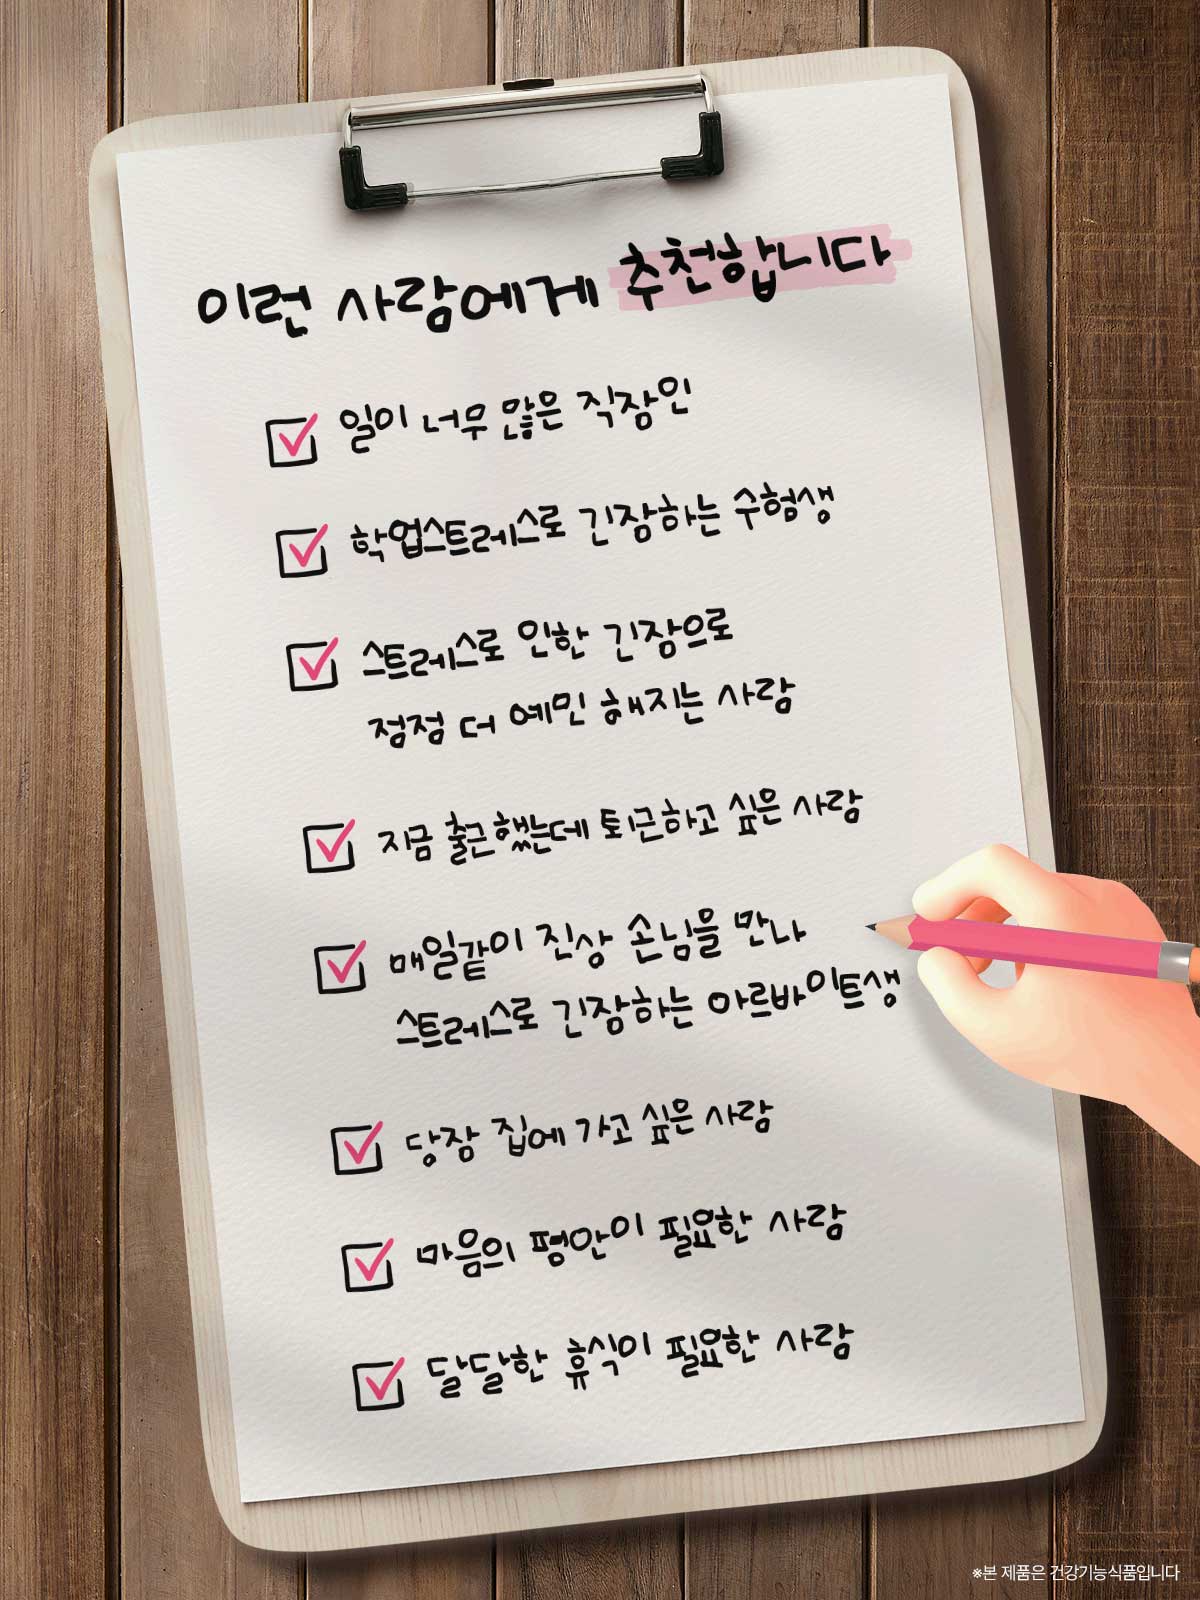 이런 사람에게 추천합니다
일이 너무 많은 직장인
학업스트레스로 긴장하는 수험생
스트레스로 인한 긴장으로
점점 더 예민해지는 사람
지금 출근했는데 퇴근하고 싶은 사람
매일같이 진상 손님을 만나
스트레스로 긴장하는 아르바이트생
당장 집에 가고 싶은 사람
마음의 평안이 필요한 사람
달달한 휴식이 필요한 사람
※본 제품은 건강기능식품입니다